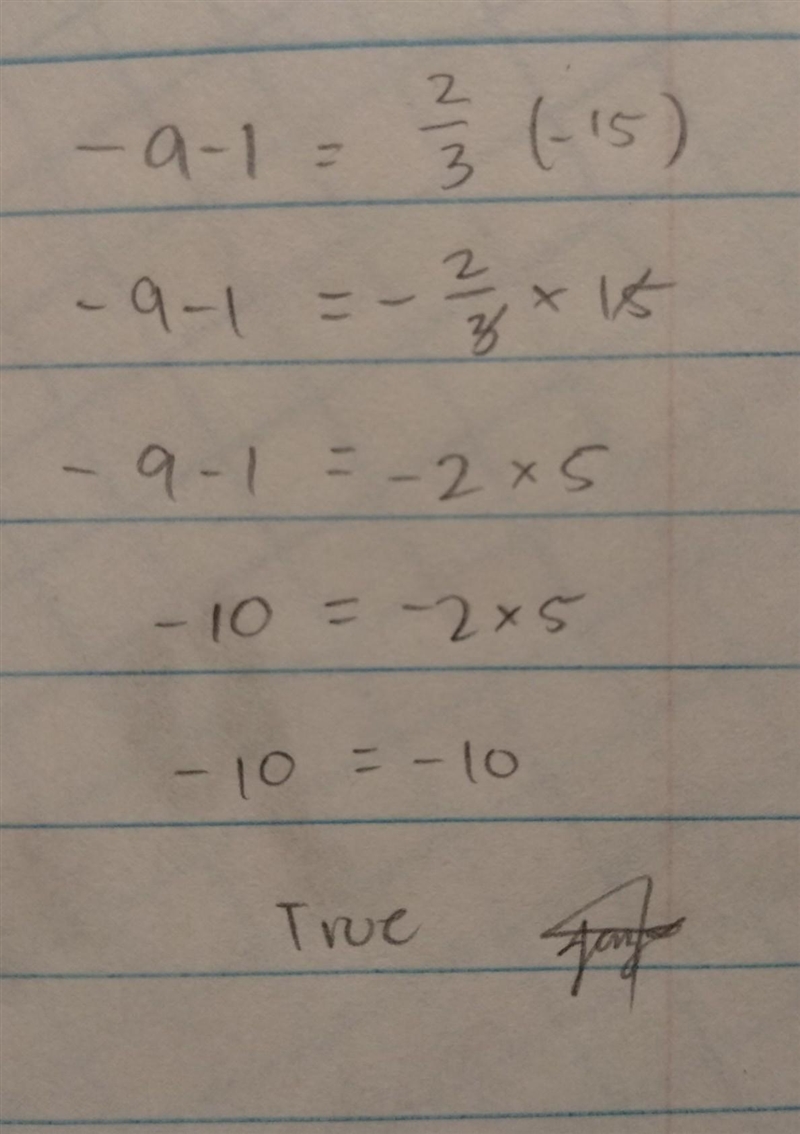 -9-1 = 2/3 (-15)
-9-1 = -2/3 × 15
-9-1 = -2×5
-10 = -2×5
-10 = -10
True